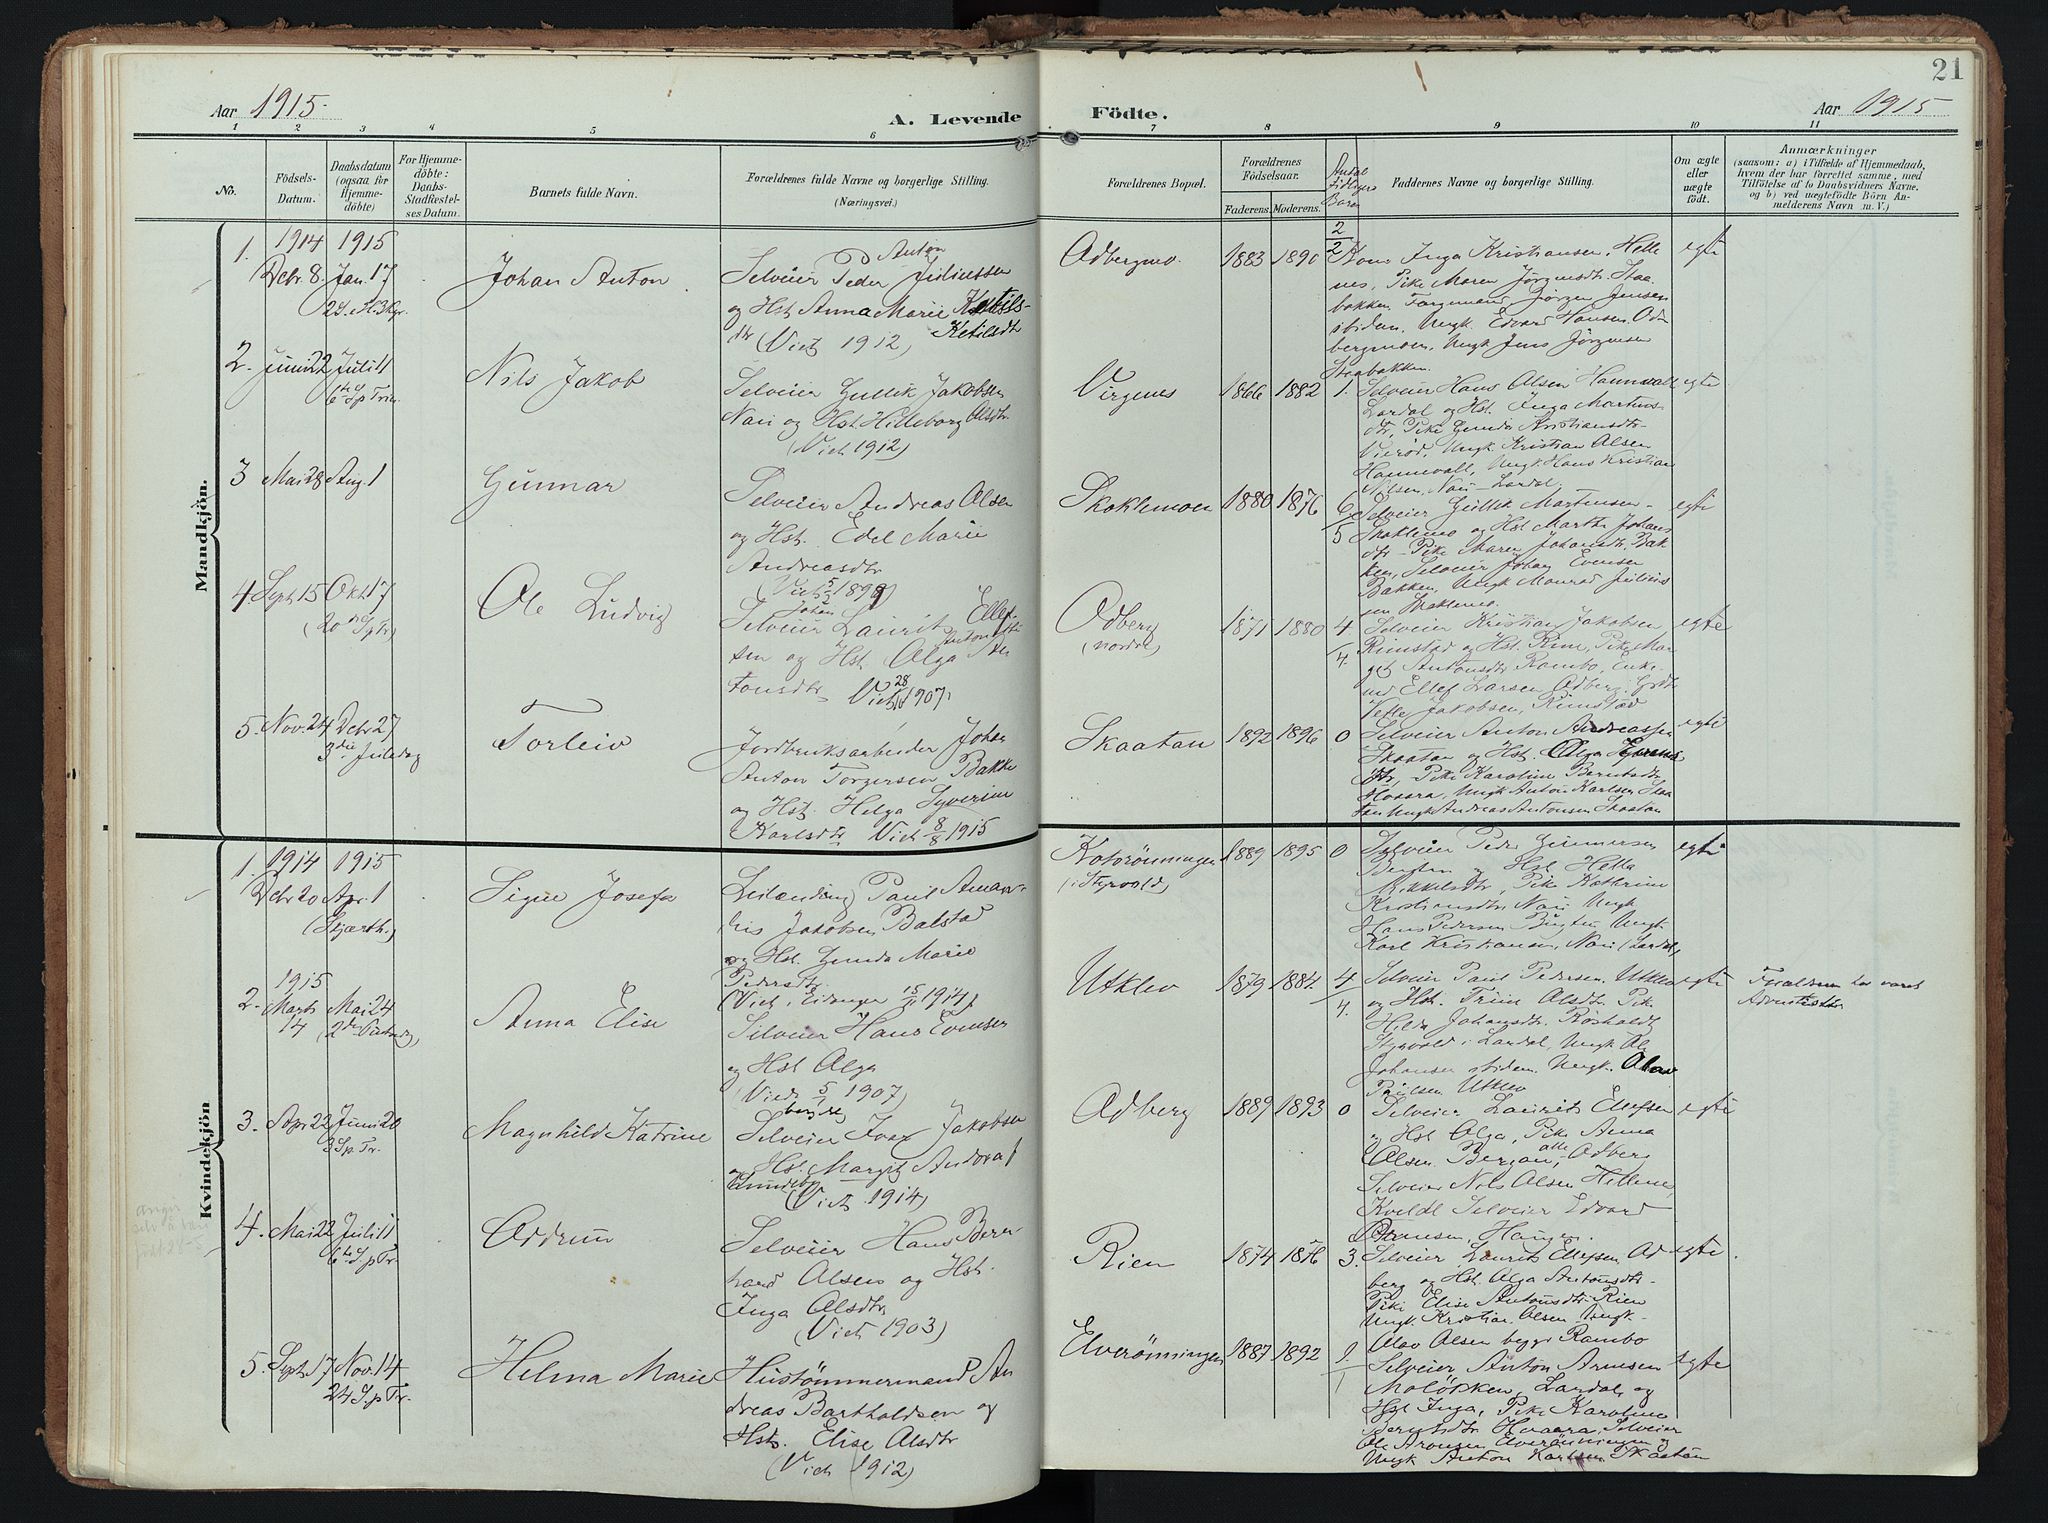 21
Aar 1915.
A. Levende
Födte.
Aar 1915
1 2 3 4 5 6
7 8 9 10 11
No.
Födsels-
Datum.
Daabsdatum
(ogsaa for
Hjemme-
döbte)
For Hjemme-
döbte:
Daabs-
Stadfæstel-
ses Datum.
Barnets fulde Navn.
Forældrenes fulde Navne og borgerlige Stilling.
(Næringsvei.)
Forældrenes Bopæl.
Forældrenes
Födselsaar.
Faderens.
Moderens.
Antal
Börn
Faddernes Navne og borgerlige Stilling.
Om ægte
eller
uægte
födt.
Anmærkninger
(saasom: a) i Tilfælde af Hjemmedaab,
hvem der har forrettet samme, med
Tilföielse af to Daabsvidners Navne,
og b) ved uægtefödte Börn An-
melderens Navn m. V.)
Mandkjön.
1. 1914 1915
Debr 8. Jan. 17
Johan Anton
Anton
Selveier Peder Juliussen
og Hst. Anna Marie
Ketilsdtr
dtr (Viet 1912)
Adbergmo.
1883 1890
2/2
Kone Inga Kristiansen, Helle
nes, Pike Maren Jørgensdtr. Staa
bakken, Jørgen Jensen
stidem, Ungk. Edvard Hansen, Ad
bergmoen, Ungk Jens Jörgensen
Staabakken.
egte
2. Juni 22 Juli 11
6te S p Trin.
Nils Jakob
Selveier Gullik Jakobsen
Nari og Hst. Hilleborg Olsdtr.
(Viet 1912)
Virgenes
1866 1882
1.
Selveier Hans Olsen Hannevall
Lardal og Hst. Inga Martins-
dtr, Pike Gunda Kristiansdtr.
Vierød, Ungk Kristian Olsen
Hannevall, Ungk Hans Kristian
Nilsen, Nari Lardal.
egte
3 Mai 28 Aug. 1
Gunnar
Selveier Andreas Olsen
og Hst. Edel Marie
Andreasdtr
Skoklemoen
1880 1876
6/5
Selveier Gullik Martinsen
Skoklemo og Hst Marthe Johans
dtr – Pike Maren Johansdtr, Bak
ken, Selveier Johan Evensen
Bakken, Ungk Monrad Julius
sen Skoklemo.
egte
4. Sept 15 Okt 17
(20de S p Tr)
Ole Ludvig
Johan
Selveier Laurits Ellef
sen og Hst. Olga
tonsdtr. Viet 28 1907.
Odberg
(nordre)
1871 1880
4/4.
Selveier Kristian Jakobsen
Rimstad og Hst. Rine, Pike Mar
git Antonsdtr Rambo, Enke
md Ellef Larsen Odberg,
Jakobsen, Rimstad
egte
5. Nov. 24 Debr 27
3die Juledag
Torleiv
Jordbruksarbeider Johan
Anton Torgersen Bakke
og Hst. Helga Syverine
Karlsdtr Viet 8/8 1915
Skaatan
1892 1896
0
Selveier Anton Andreassen
Skaatan og Hst. Olga
dtr. Pike Karoline Berntsdtr
Hvaara, Ungk Anton Karlsen Skaa
tan Ungk Andreas Antonsen Skaatan
egte
Kvindekjön
1. 1914 1915
Debr 20 Apr. 1
(Skjærth.)
Signe Josefa
Leilænding Paul Aman-
Jakobsen Balstad
og Hst. Gunda Marie
Pedersdtr.
(Viet i Eidanger 15 1914)
Kotorönningen
(i Styrvold)
1889 1895
0
Selveier Peder Gunnersen
og Hst Helle
Mikkelsdtr, Pike Kathrine
Kristiansdtr Nari Ungk
Hans Pedersen Ungk
Karl Kristiansen, Nari (Lardal)
egte
1915
2. Marts 14 Mai 24
(2den Pinsedag)
Anna Elise
Selveier Hans Evensen
og Hst Olga
(Viet 5 1907)
Utklev
1879 1884.
4/4.
Selveier Paul Pedersen, Utklev
og Hst. Trine Olsdtr. Pike
Hilda Johansdtr. Røsholdt
Styrvold i Lardal, Ungk Ole
Johansen stidem. Ungk. Olav
Paulsen Utklev
egte
Forældrene har været
Adventister
3. Apr 22 Juni 20
3 S p Tr.
Magnhild Katrine
Selveier Ivar Jakobsen
og Hst. Margit Andora
(Viet 1914)
Adberg
1889 1893
0
Selveier Laurits Ellefsen
og Hst Olga, Pike Anna
Olsen Bergan, alle Adberg
Selveier Nils Olsen Hellenes,
Kveldl Selveier Edvard
egte
4. Mai 22 Juli 11
6te S. p Tr.
Oddrun
Selveier Hans Bern
hard Olsen og Hst.
Inga Olsdtr
(Viet 1903)
Rien
1874 1876
3.
Selveier Laurits Ellefsen Ad
berg og Hst. Olga Antonsdtr.
Pike Elise Antonsdtr. Rien
Ungk Kristian Olsen Ungk.
Olav Olsen begge Rambo
egte
5. Sept 17 Nov. 14
24 S. p Tr.
Helma Marie
Hustömmermand P An
dreas Bartholdsen og
Hst. Elise Olsdtr
(Viet 1912)
Elverönningen
1887 1892
1/1
Selveier Anton Arnesen
Molökken, Lardal og
Hst Inga, Pike Karoline
Berntsdtr Hvaara, Selveier
Ole Aronsen Elverönningen og
Ungk Anton Karlsen Skaatan
egte